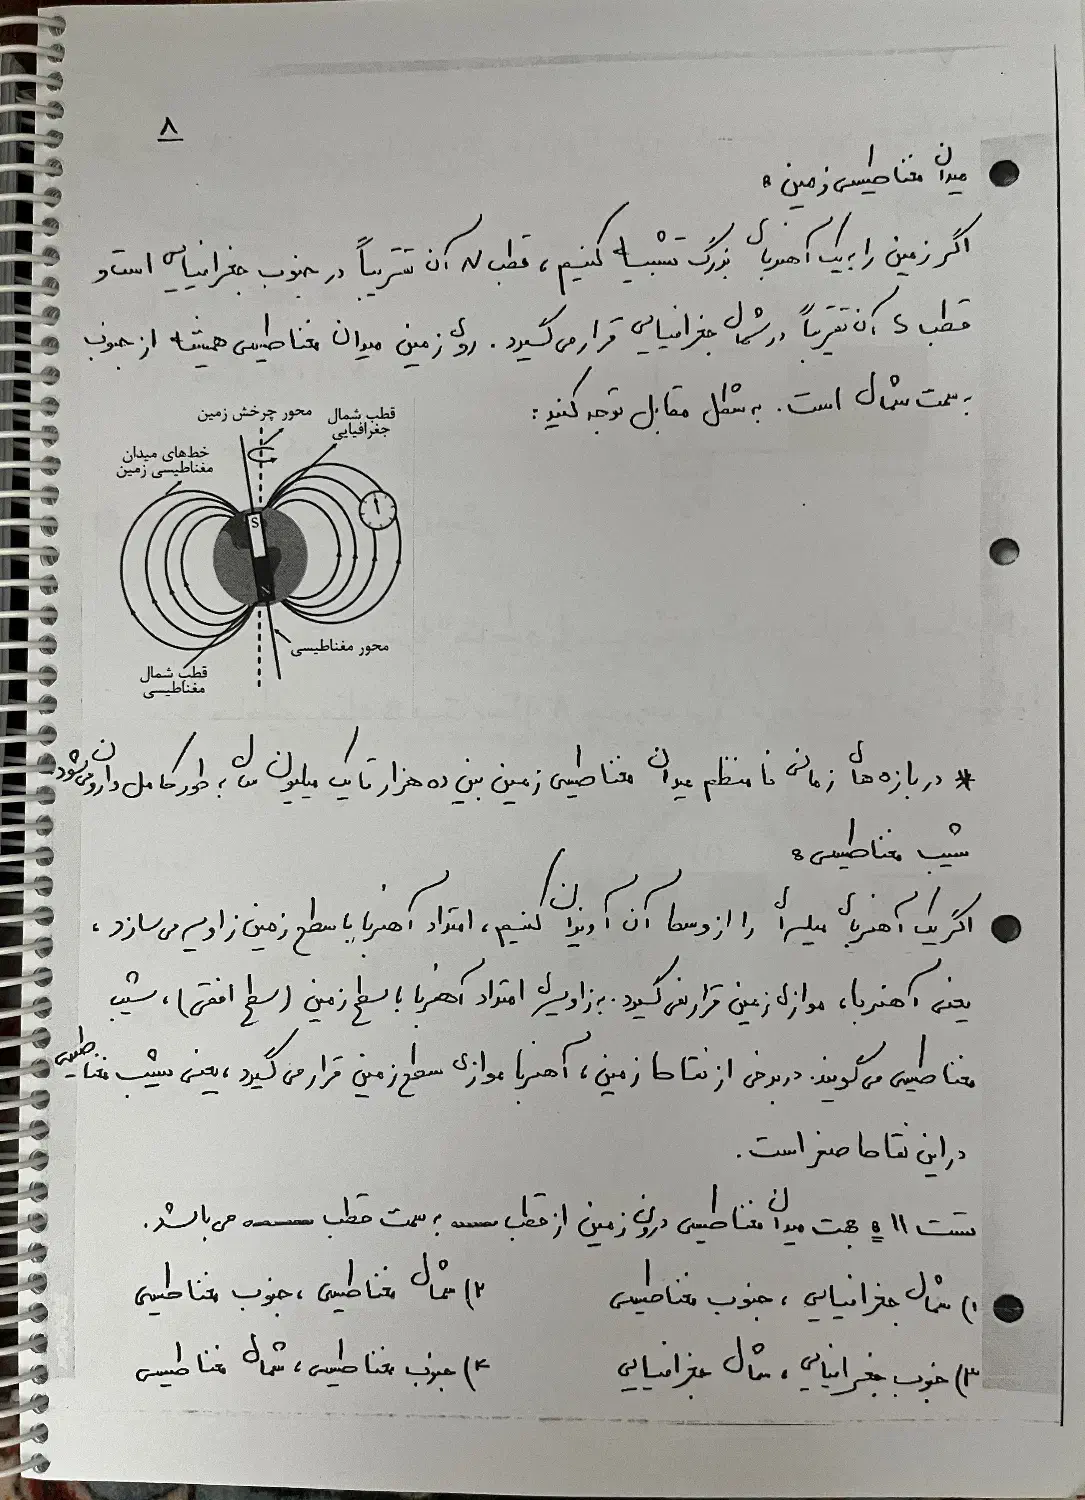 ۸
میدان مغناطیسی زمین :
اگر زمین را به یک آهنربای بزرگ تشبیه کنیم ، قطب N آن تقریباً در جنوب جغرافیایی است و
قطب S آن تقریباً در شمال جغرافیایی قرار می گیرد . روی زمین میدان مغناطیسی همیشه از جنوب
به سمت شمال است . به شکل مقابل توجه کنید :
قطب شمال
جغرافیایی
محور چرخش زمین
خط‌های میدان
مغناطیسی زمین
S
N
محور مغناطیسی
قطب شمال
مغناطیسی
* در بازه های زمانی نا منظم میدان مغناطیسی زمین بین ده هزار تا یک میلیون سال به طور کامل وارون می شود .
شیب مغناطیسی :
اگر یک آهنربای میله‌ای را از وسط آن آویزان کنیم ، امتداد آهنربا با سطح زمین زاویه می سازد ،
یعنی آهنربا ، موازی زمین قرار نمی گیرد . به زاویه‌ی امتداد آهنربا با سطح زمین (سطح افقی) ، شیب
مغناطیسی می گویند . در برخی از نقاط زمین ، آهنربا موازی سطح زمین قرار می گیرد ، یعنی شیب مغناطیسی
در این نقاط صفر است .
تست ۱۱ : جهت میدان مغناطیسی درون زمین از قطب ـــــ به سمت قطب ـــــ می باشد .
۱) شمال جغرافیایی ، جنوب مغناطیسی
۲) شمال مغناطیسی ، جنوب مغناطیسی
۳) جنوب جغرافیایی ، شمال جغرافیایی
۴) جنوب مغناطیسی ، شمال مغناطیسی